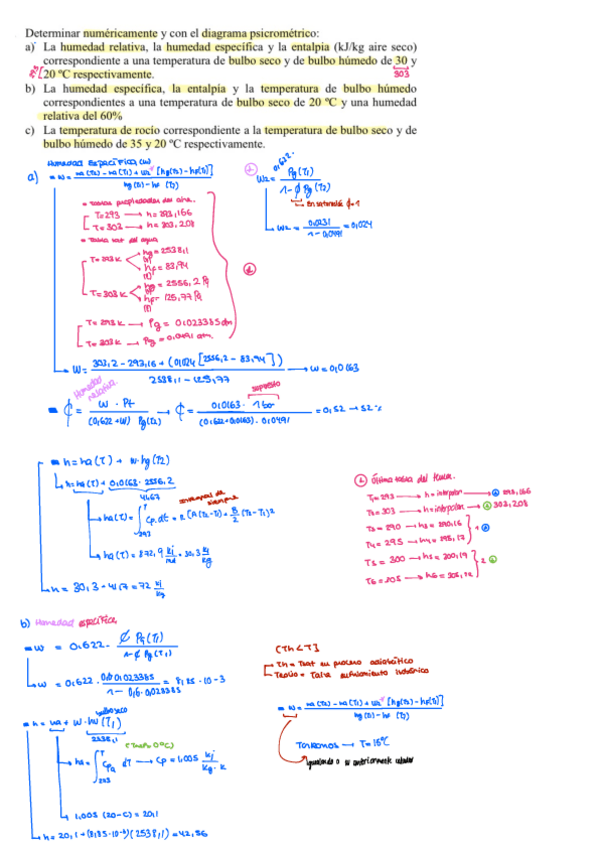 Determinar numéricamente y con el diagrama psicrométrico:
a) La humedad relativa, la humedad específica y la entalpia (kJ/kg aire seco)
correspondiente a una temperatura de bulbo seco y de bulbo húmedo de 30 y
20 ºC respectivamente.
303
b) La humedad específica, la entalpia y la temperatura de bulbo húmedo
correspondientes a una temperatura de bulbo seco de 20 ºC y una humedad
relativa del 60%
c) La temperatura de rocío correspondiente a la temperatura de bulbo seco y de
bulbo húmedo de 35 y 20 ºC respectivamente.
Humedad Específica (w)
a)
en saturación φ=1
w2 = 0,0231 / 1-0,0491 = 0,024
Tablas propiedades del aire
T=293 → h=293,166
T=303 → h=303,208
Tabla sat del agua
T=293 K
hg=2538,1
hf=83,94
T=303 K
hg=2556,2
hf=125,77
T=293K → Pg = 0,023385 atm
T=303K → Pg = 0,0491 atm
w = 303,2 - 293,16 + (0,024 [2556,2 - 83,94]) / 2538,1 - 125,77 → w=0,0163
Humedad relativa
supuesto
φ = w · Pt / (0,622+w) Pg(T2) → φ = 0,0163 · 1 / (0,622+0,0163) · 0,0491 = 0,52 → 52%
h = ha(T) + w·hg(T2)
h = ha(T) + 0,0163·2556,2
41,67
ha(T) = 872,9 kJ/ = 30,3 kJ/kg
h = 30,3 + 41,7 = 72 kJ/kg
Última tabla del
T1=293 → h=interpolar → 293,166
T2=303 → h=interpolar → 303,208
T3=290 → h3=290,16
T4=295 → h4=295,17
T5=300 → h5=300,19
b) Humedad específica
w = 0,622 · φ Pg(T1) / 1-φ Pg(T1)
w = 0,622 · 0,6·0,023385 / 1-0,6·0,023385 = 8,85·10-3
bulbo seco
h = ha + w·hv(T1)
2538,1
dT → cp = 1,005 kJ/kg·K
1,005 (20-0) = 20,1
h = 20,1 + (8,85·10-3)(2538,1) = 42,56
(Th<T)
Th = Tsat en proceso adiabático
Trocío = Tsat a enfriamiento isobárico
Tanteamos → T=15ºC
Igualando a w anteriormente calculado